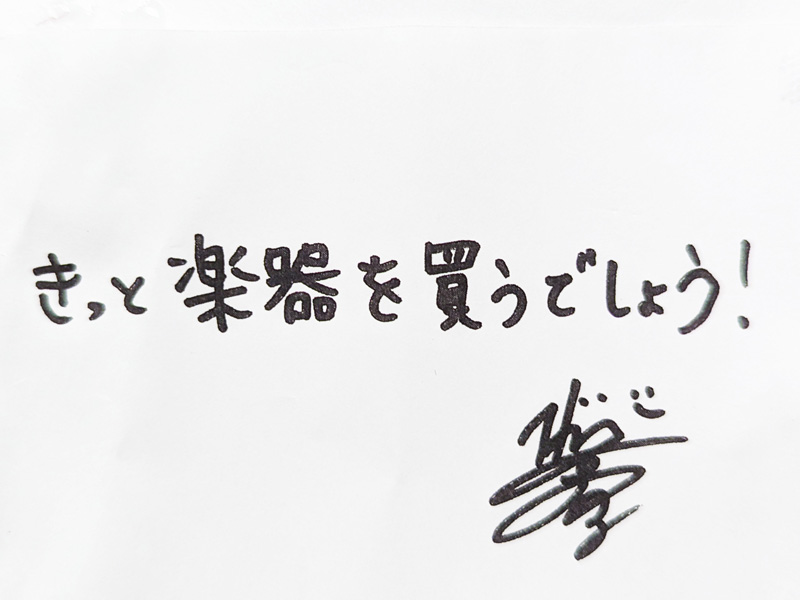 きっと楽器を買うでしょう!